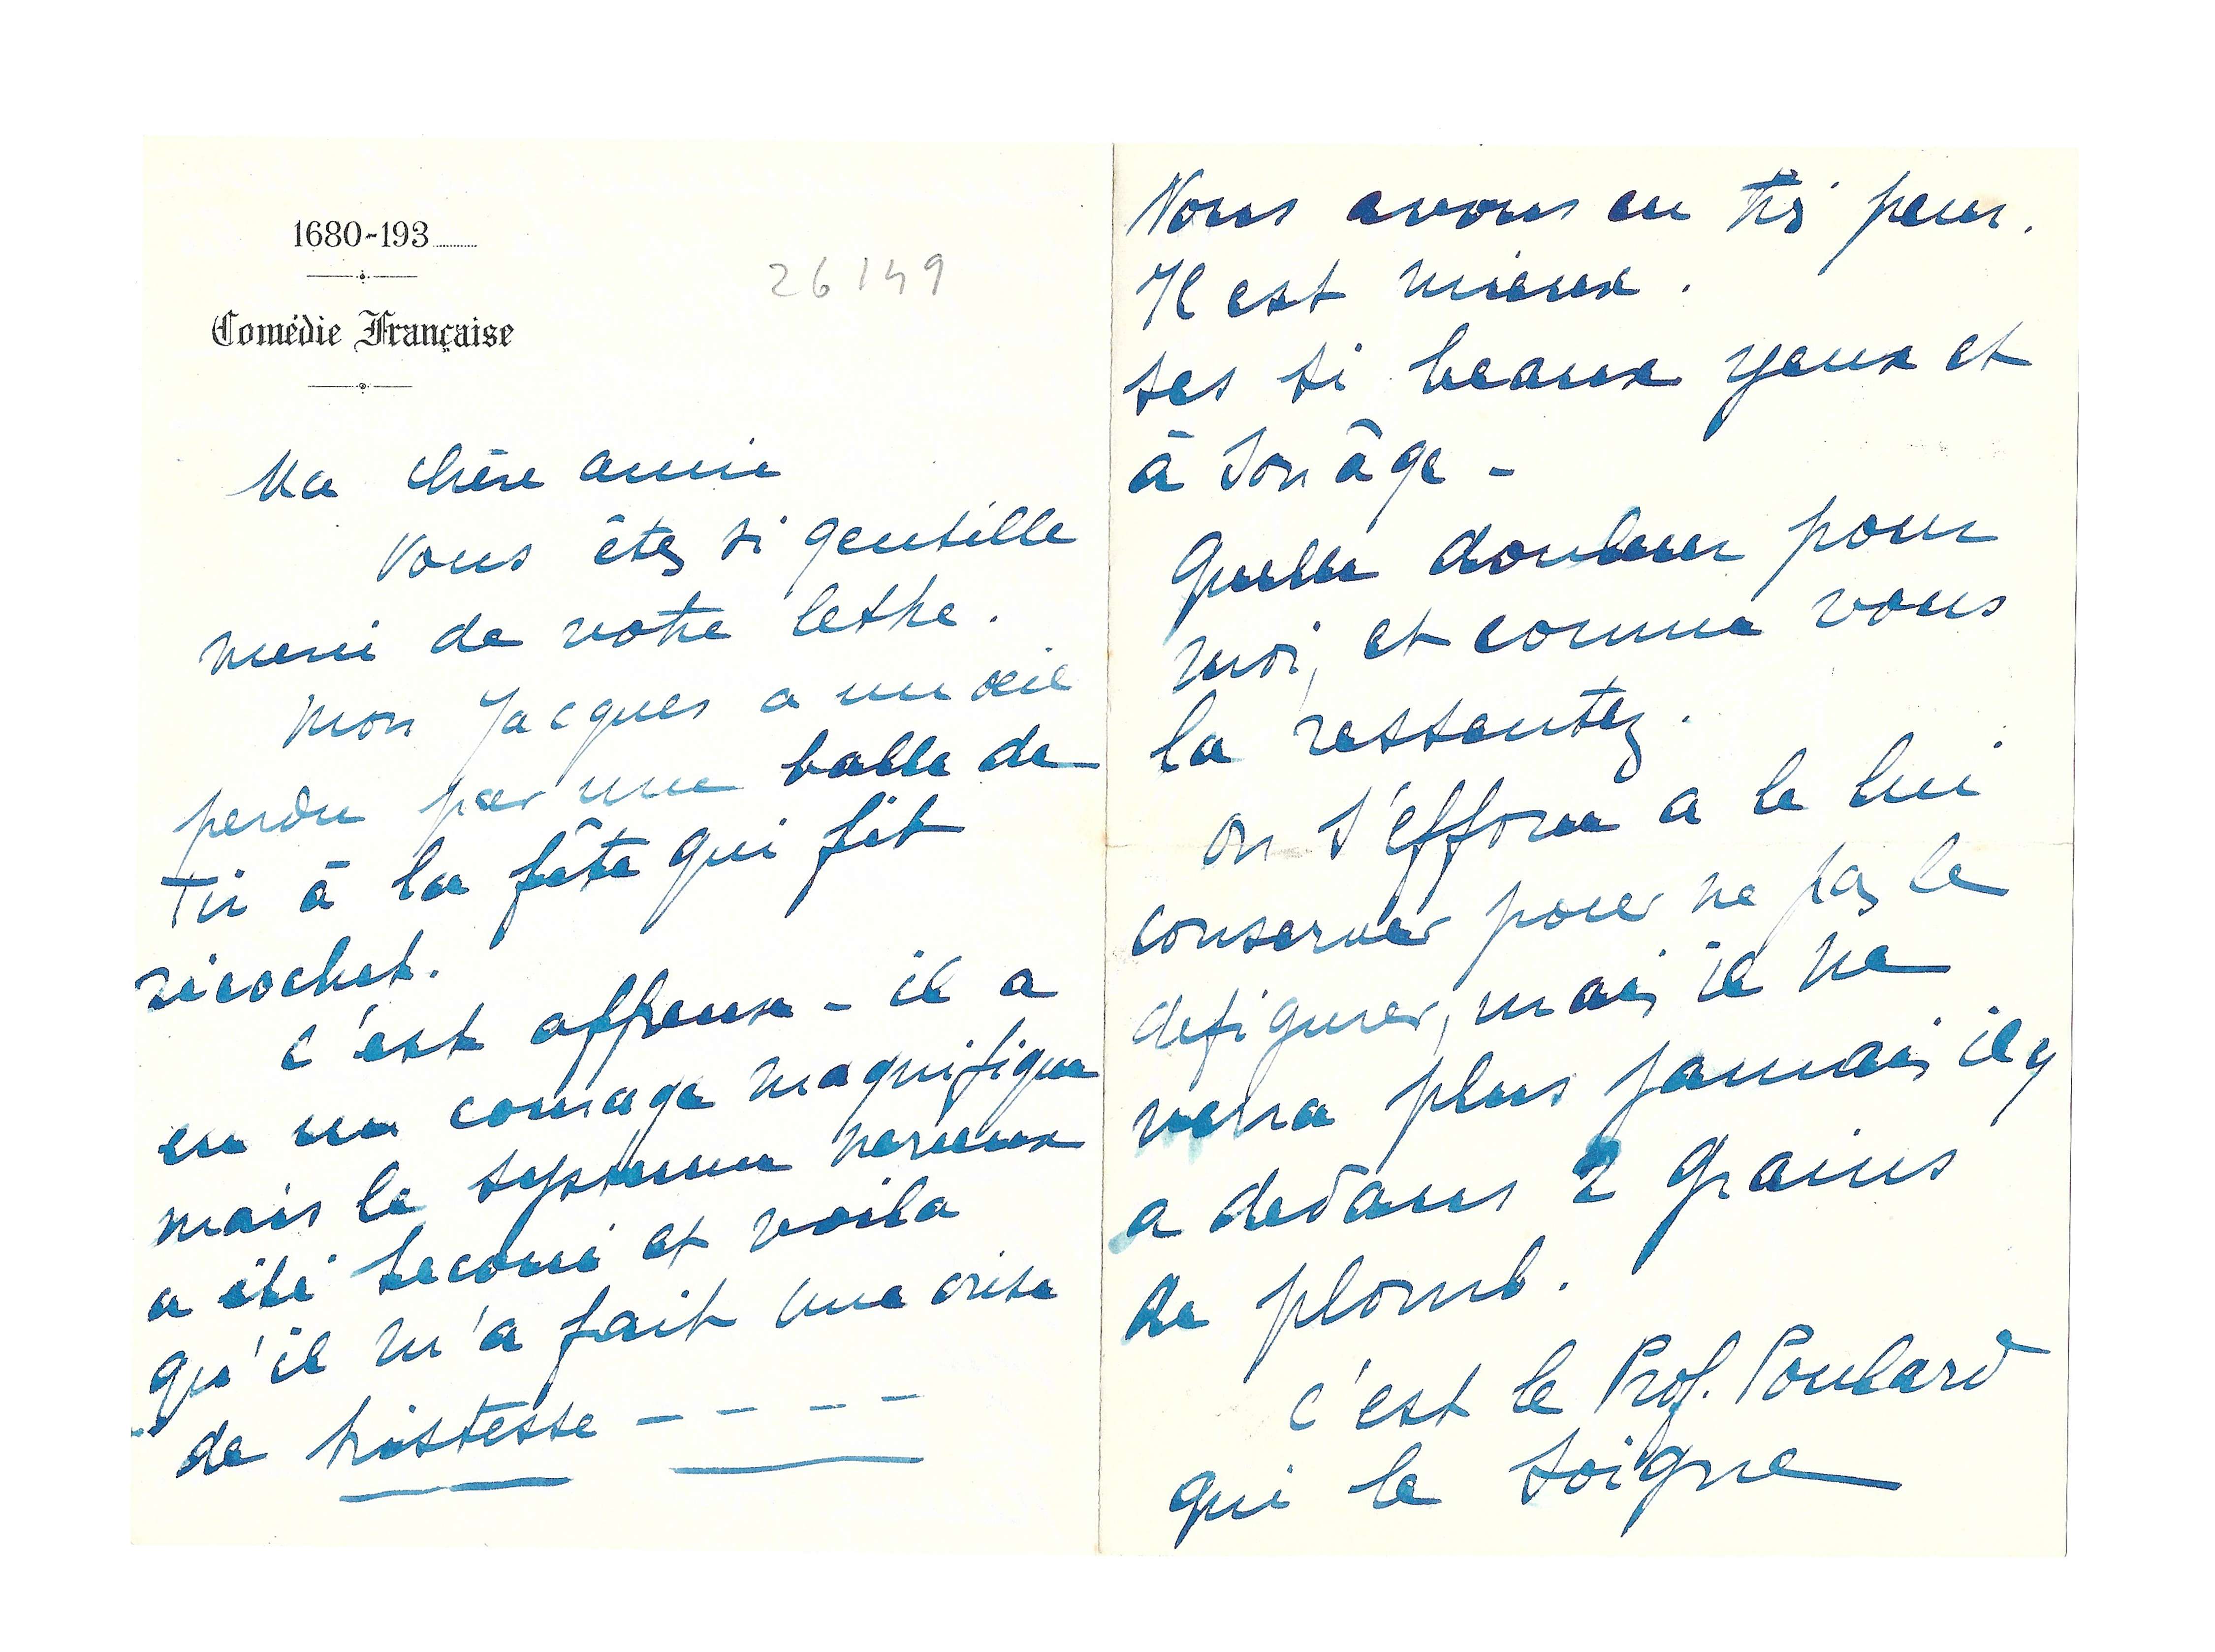 1680-193
Comédie Française
26149
Ma chère amie
Vous êtes si gentille
merci de votre lettre.
Mon Jacques a un œil
perdu par une balle de
Tir à la fête qui fit
ricochet.
C'est affreux - il a
eu un courage magnifique
mais le système nerveux
a été secoué et voilà
qu'il m'a fait une crise
de tristesse - - - - -
Nous avons eu très peur.
Il est mieux.
ses si beaux yeux et
à son âge -
Quelle douleur pour
moi, et comme vous
la ressentez.
On s'efforce a le lui
conserver pour ne pas le
defigurer, mais il ne
verra plus jamais il y
a dedans 2 grains
de plomb.
C'est le Prof. Poulard
qui le soigne